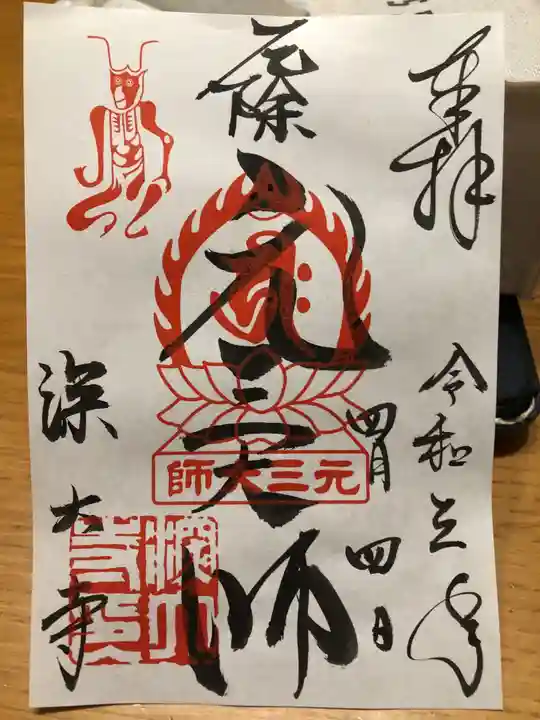 奉拝
令和三年
四月四日
元三大師
元三大師
深大寺